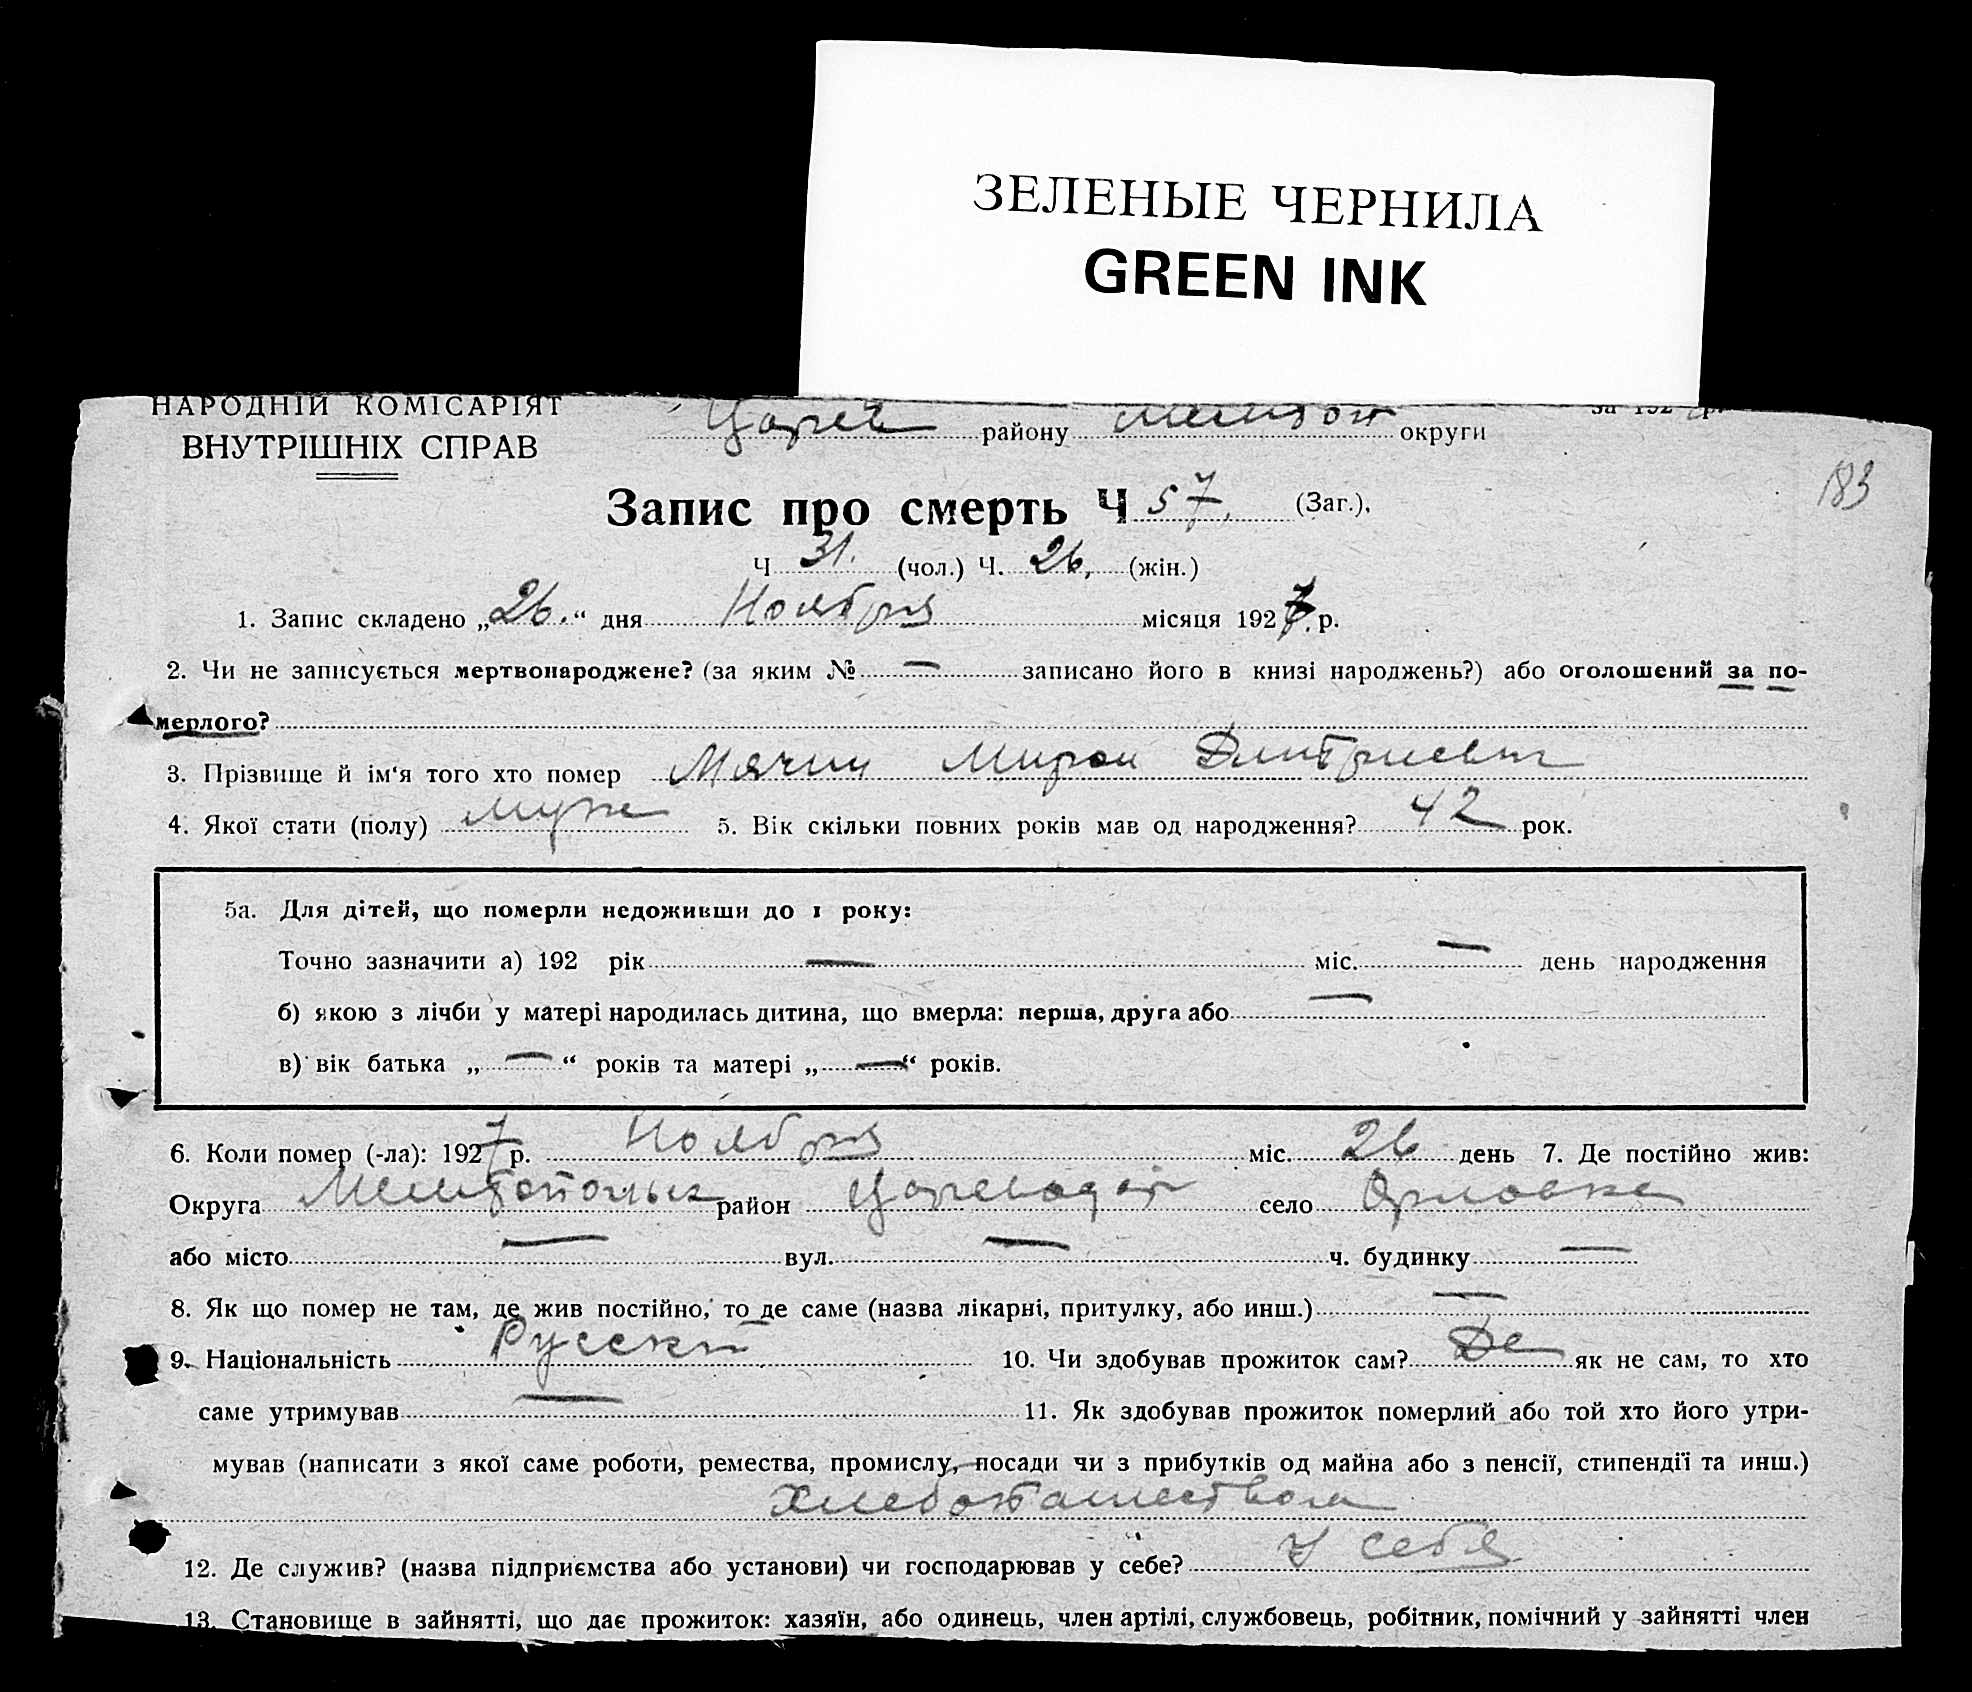 ЗЕЛЕНЫЕ ЧЕРНИЛА
GREEN INK
НАРОДНІЙ КОМІСАРІЯТ
ВНУТРІШНІХ СПРАВ
Царев району Мелитоп округи
за 192 р.
183
Запис про смерть Ч 57. (Заг.),
Ч 31. (чол.) Ч. 26, (жін.)
1. Запис складено „26.“ дня Ноября місяця 1927 р.
2. Чи не записується мертвонароджене? (за яким № — записано його в книзі народжень?) або оголошений за по-
мерлого?
3. Прізвище й ім'я того хто помер Мячин Мирон Дмитриевич
4. Якої стати (полу) муж 5. Вік скільки повних років мав од народження? 42 рок.
5а. Для дітей, що померли недоживши до 1 року:
Точно зазначити а) 192 рік — міс. — день народження
б) якою з лічби у матері народилась дитина, що вмерла: перша, друга або —
в) вік батька „—“ років та матері „—“ років.
6. Коли помер (-ла): 1927 р. Ноября міс. 26 день 7. Де постійно жив:
Округа Мелитопольск район Цареводар село Орловка
або місто — вул. — ч. будинку —
8. Як що помер не там, де жив постійно, то де саме (назва лікарні, притулку, або инш.) —
9. Національність Русский 10. Чи здобував прожиток сам? Да як не сам, то хто
саме утримував — 11. Як здобував прожиток померлий або той хто його утри-
мував (написати з якої саме роботи, ремества, промислу, посади чи з прибутків од майна або з пенсії, стипендії та инш.)
Хлебопашеством
12. Де служив? (назва підприємства або установи) чи господарював у себе? У себя
13. Становище в зайнятті, що дає прожиток: хазяїн, або одинець, член артілі, службовець, робітник, помічний у зайнятті член